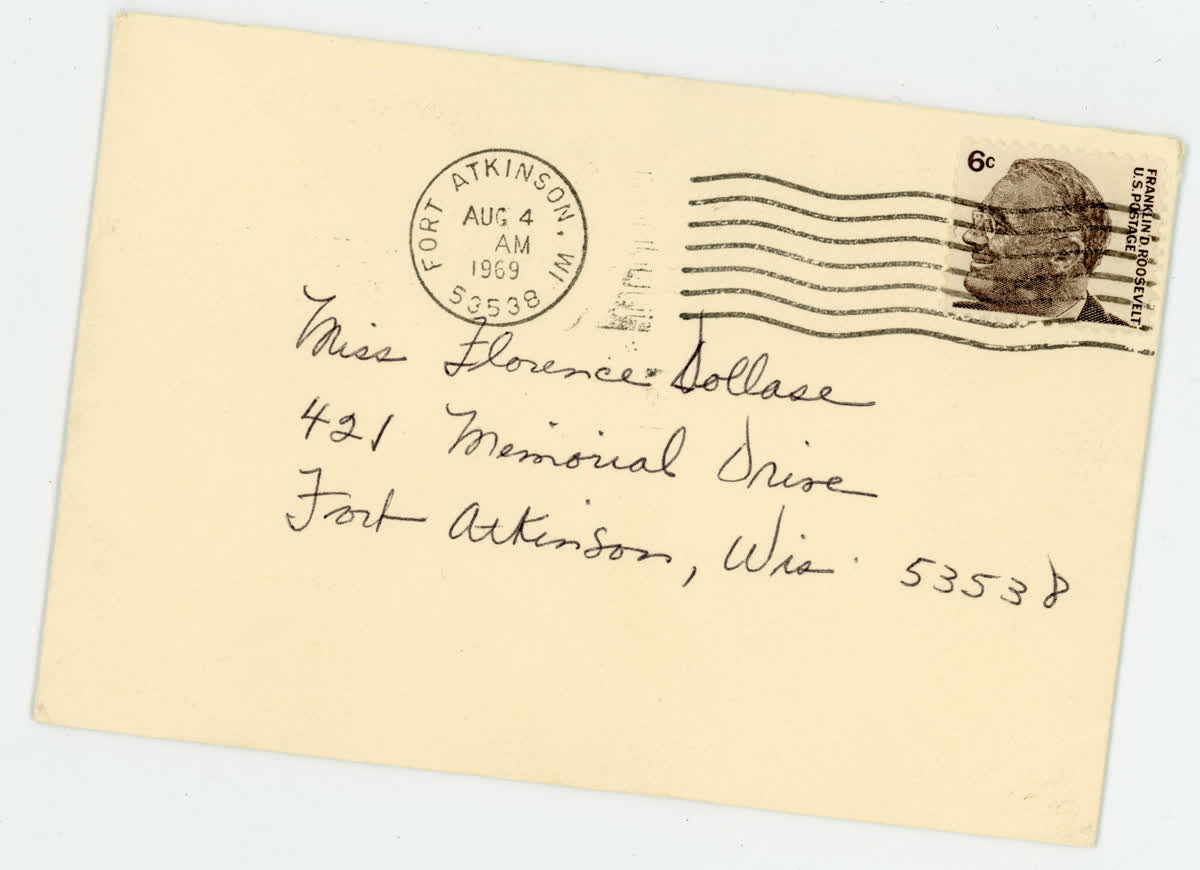 FORT ATKINSON, WI
AUG 4
AM
1969
53538
6c
FRANKLIN D. ROOSEVELT
U.S. POSTAGE
Miss Florence Dollase
421 Memorial Drive
Fort Atkinson, Wis. 53538